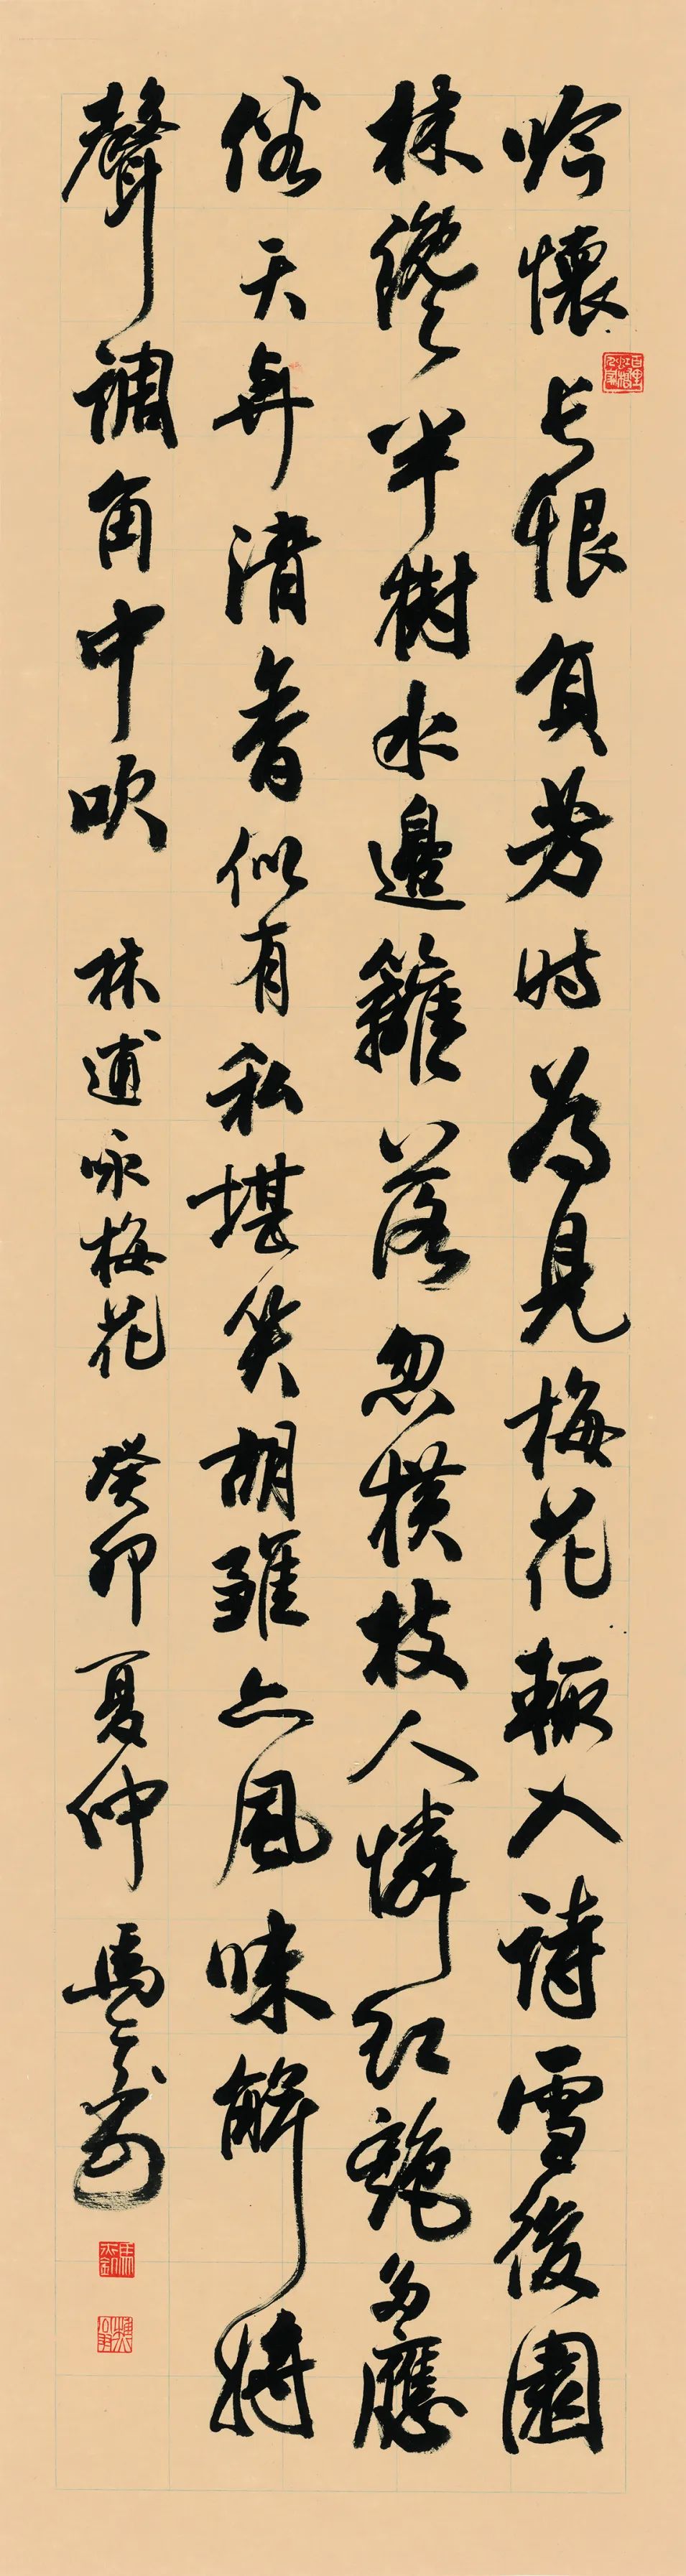 吟懷長恨負芳時為見梅花輒入詩雪後園
林纔半樹水邊籬落忽橫枝人憐紅艷多應
俗天與清香似有私堪笑胡雛亦風味解將
聲調角中吹 林逋詠梅花 癸卯夏仲 馬